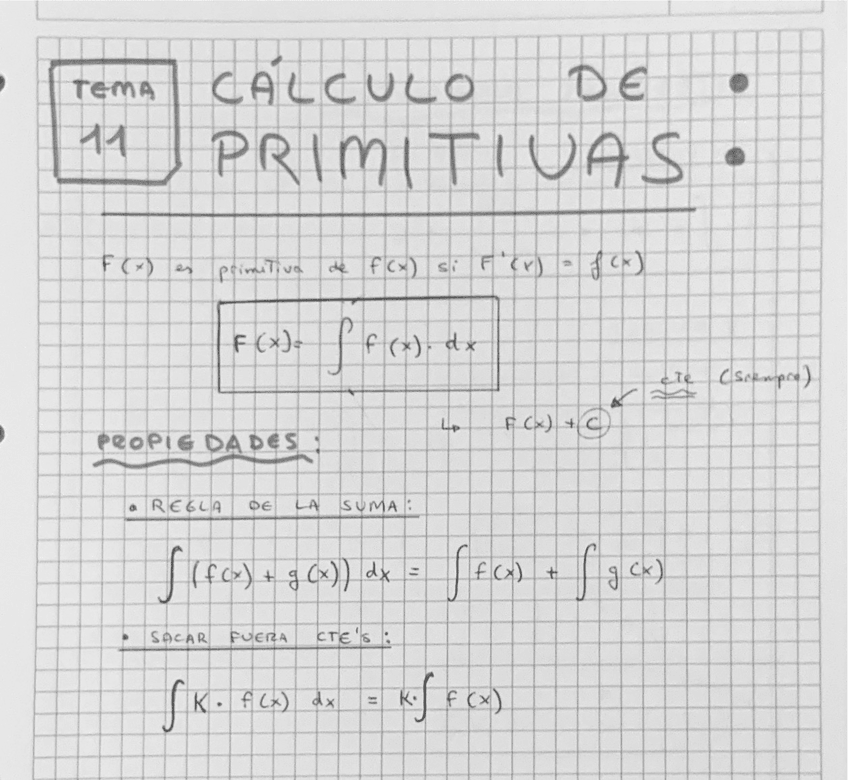 TEMA 11
CÁLCULO DE
PRIMITIVAS
F(x) es primitiva de f(x) si F'(x) = f(x)
F(x)= ∫ f(x). dx
cte (siempre)
↳ F(x) + C
PROPIEDADES:
• REGLA DE LA SUMA:
∫ (f(x) + g(x)) dx = ∫ f(x) + ∫ g(x)
• SACAR FUERA CTE'S:
∫ K · f(x) dx = K·∫ f(x)